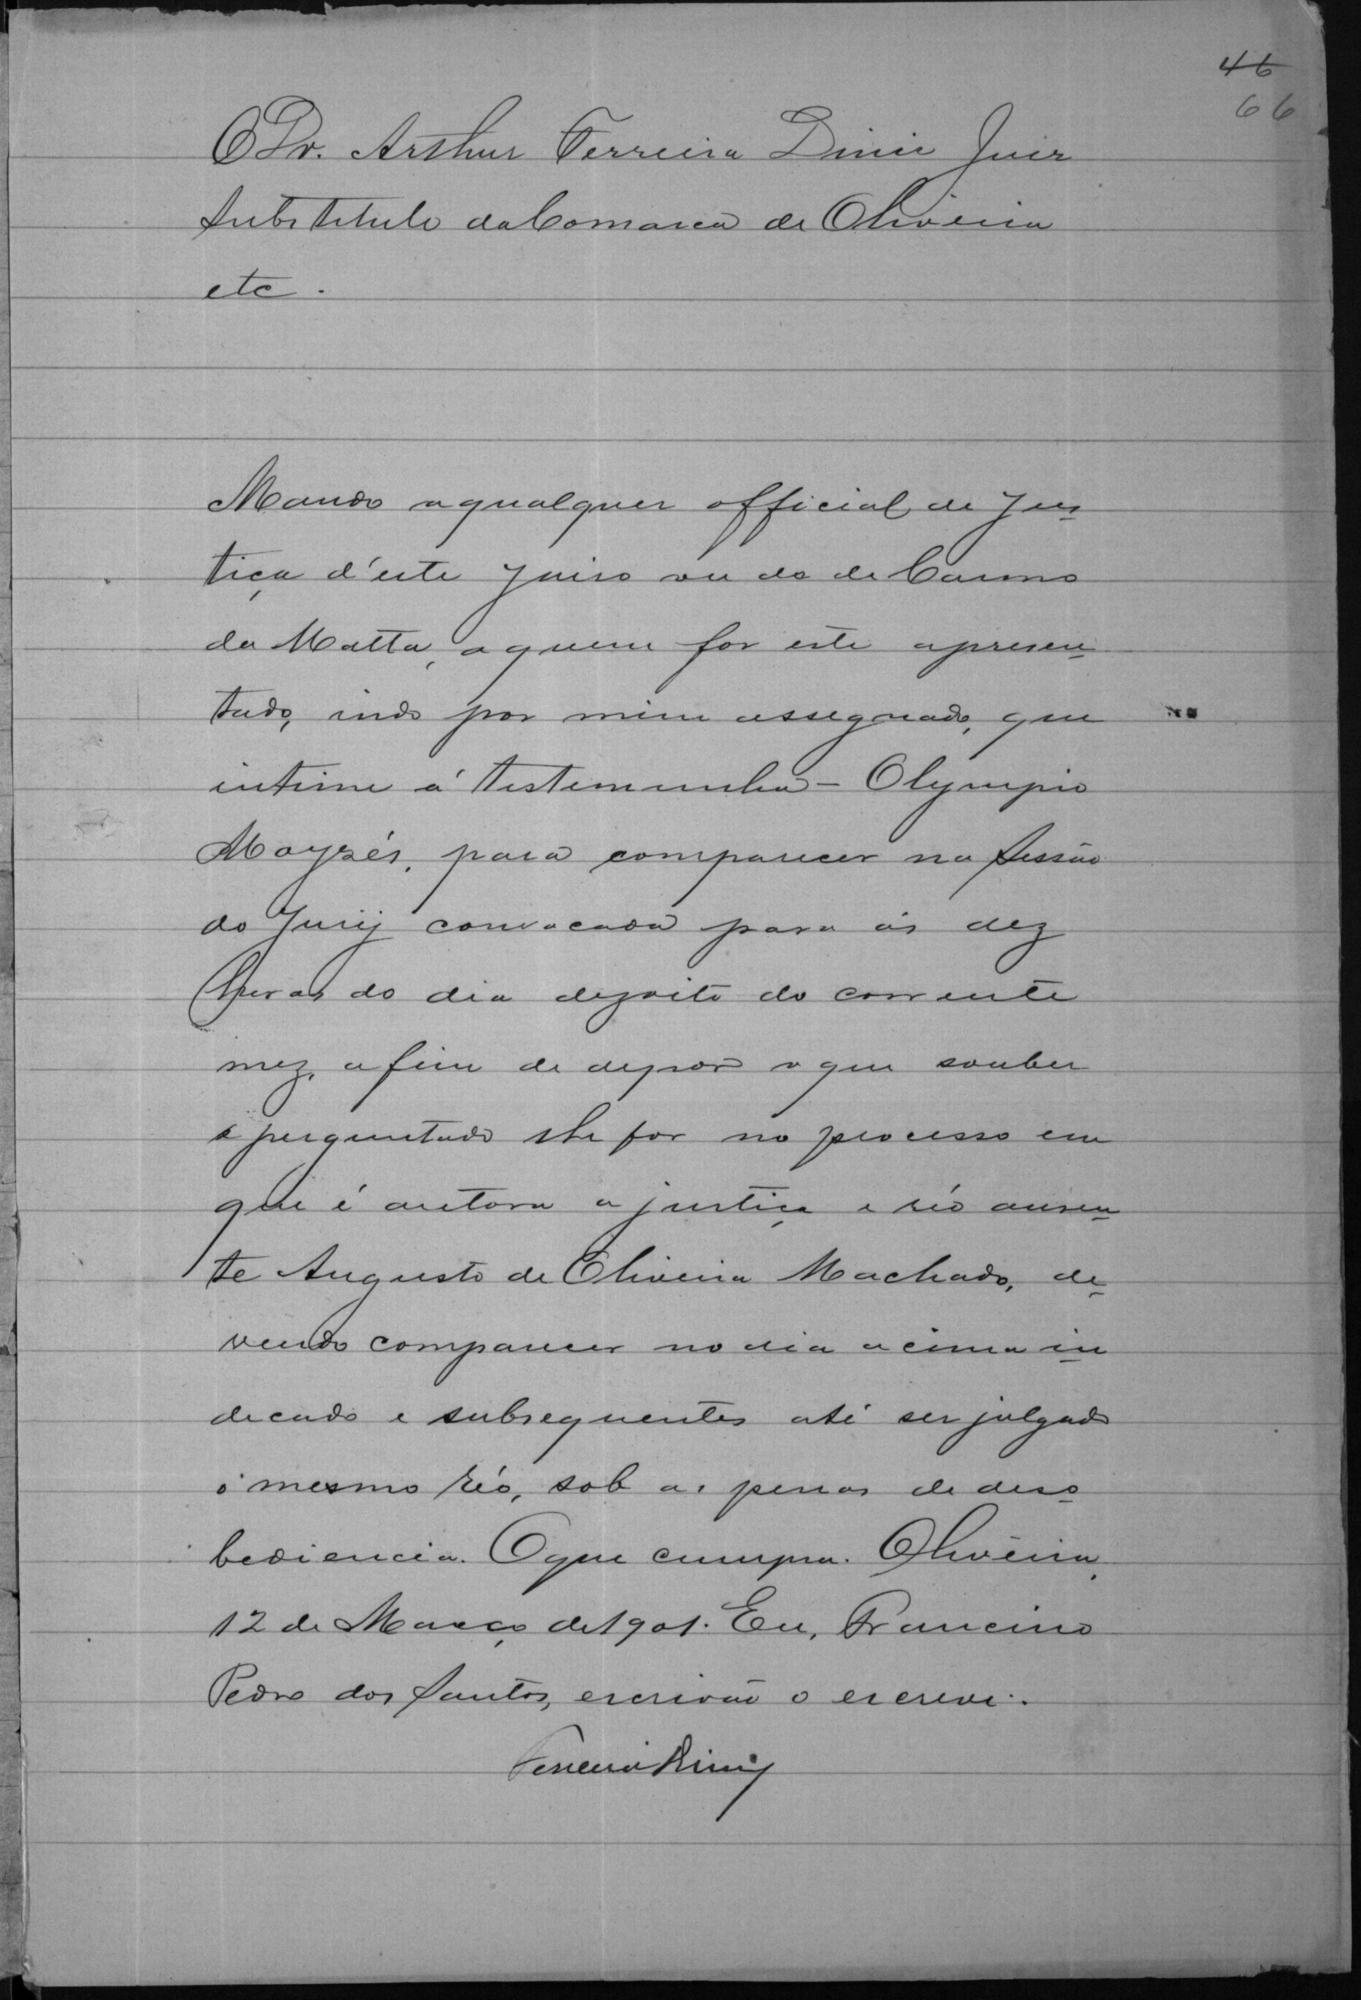 46
66
O Dr. Arthur Ferreira Diniz Juiz
Substituto da Comarca de Oliveira
etc.
Mando a qualquer official de Jus-
tiça d'este Juiso ou do de Carmo
da Matta, a quem for este apresen-
tado, indo por mim assegnado, que
intime á testemunha - Olympio
Moysés, para comparecer na sessão
do Jury convocada para ás dez
horas do dia dezoito do corrente
mez, a fim de depor o que souber
e perguntado lhe for no processo em
que é autora a justiça e réo ausen-
te Augusto de Oliveira Machado, de-
vendo comparecer no dia acima in-
decado e subsequentes até ser julgado
o mesmo réo, sob as penas de deso-
bediencia. O que cumpra. Oliveira,
12 de Março de 1901. Eu, Francino
Pedro dos Santos, escrivão o escrevi.
Ferreira Diniz